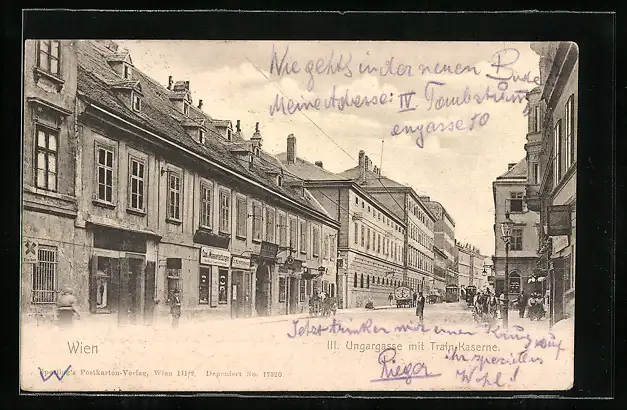 Wie gehts in der neuen Bude
Meine Adresse: IV. Taubstum
engasse 10
Wien
III. Ungargasse mit Train-Kaserne.
Jetzt trinken wir einen Krug auf
ihr spezielles
Wohl!
Rieger
W
Sperling's Postkarten-Verlag, Wien III/2, Deponiert No. 17520